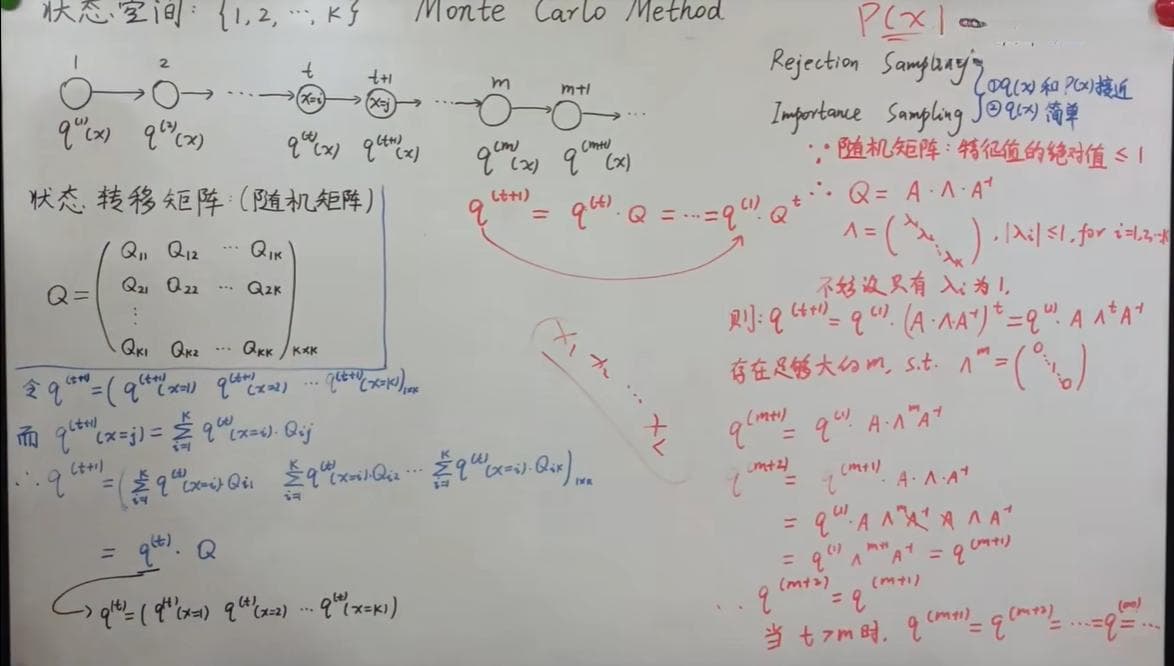 状态空间: {1, 2, ⋯, K}  Monte Carlo Method
1  2  t  t+1  m  m+1
⋯  x=i  x=j  ⋯  ⋯
q^(1)(x)  q^(2)(x)  q^(t)(x)  q^(t+1)(x)  q^(m)(x)  q^(m+1)(x)
状态转移矩阵: (随机矩阵)
Q = ( Q11  Q12  ⋯  Q1K
Q21  Q22  ⋯  Q2K
⋮
QK1  QK2  ⋯  QKK )K×K
令 q^(t+1) = ( q^(t+1)(x=1)  q^(t+1)(x=2)  ⋯  q^(t+1)(x=K) )1×K
而 q^(t+1)(x=j) = ∑_{i=1}^{K} q^(t)(x=i)·Qij
∴ q^(t+1) = ( ∑_{i=1}^{K} q^(t)(x=i)·Qi1  ∑_{i=1}^{K} q^(t)(x=i)·Qi2 ⋯ ∑_{i=1}^{K} q^(t)(x=i)·QiK )1×K
= q^(t)·Q
q^(t) = ( q^(t)(x=1)  q^(t)(x=2)  ⋯  q^(t)(x=K) )
q^(t+1) = q^(t)·Q = ⋯ = q^(1)·Q^t
x1 x2 ⋯
P(x)
Rejection Sampling
Importance Sampling
①q(x)和P(x)接近
②q(x)简单
∵ 随机矩阵: 特征值的绝对值 ≤ 1
∴ Q = A·Λ·A^-1
Λ = ( λ1 λ2 ⋱ λK ), |λi| ≤ 1, for i=1,2,⋯K
不妨设只有 λi 为 1.
则: q^(t+1) = q^(1)·(A·Λ·A^-1)^t = q^(1)·A Λ^t A^-1
存在足够大的m, s.t. Λ^m = ( 0 ⋱ 1 ⋱ 0 )
q^(m+1) = q^(1)·A·Λ^m A^-1
q^(m+2) = q^(m+1)·A·Λ·A^-1
= q^(1)·A Λ^m A^-1 A Λ A^-1
= q^(1) Λ^m+1 A^-1 = q^(m+1)
∴ q^(m+2) = q^(m+1)
当 t>m 时, q^(m+1) = q^(m+2) = ⋯ = q^(∞) = ⋯